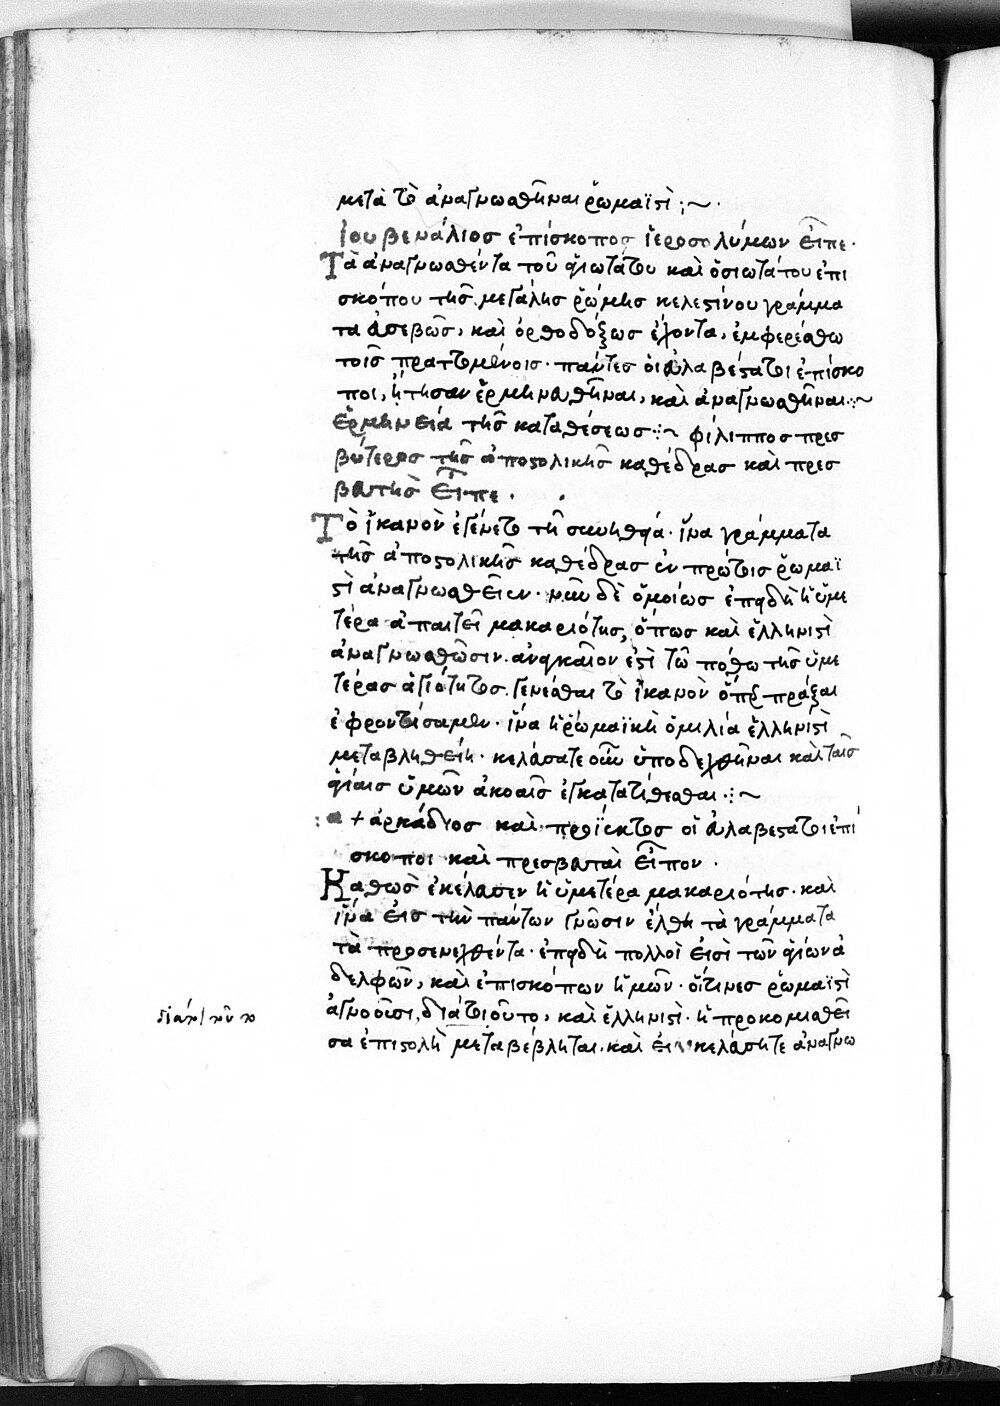 μετὰ τὸ ἀναγνωσθῆναι ῥωμαϊστὶ :~
ἰουβενάλιος ἐπίσκοπος ἱεροσολύμων εἶπε·
Τὰ ἀναγνωσθέντα τοῦ ἁγιωτάτου καὶ ὁσιωτάτου ἐπι
σκόπου τῆς μεγάλης ῥώμης κελεστίνου γράμμα
τα εὐσεβῶς, καὶ ὀρθοδόξως ἔχοντα, ἐμφερέσθω
τοῖς πραττομένοις· πάντες οἱ εὐλαβέστατοι ἐπίσκο
ποι, ἤτησαν ἑρμηνευθῆναι, καὶ ἀναγνωσθῆναι :~
ἑρμηνεία τῆς καταθέσεως :~ φίλιππος πρεσ
βύτερος τῆς ἀποστολικῆς καθέδρας καὶ πρεσ
βευτὴς εἶπε·
Τὸ ἱκανὸν ἐγένετο τῇ συνηθείᾳ· ἵνα γράμματα
τῆς ἀποστολικῆς καθέδρας ἐν πρώτοις ῥωμαϊ
στὶ ἀναγνωσθεῖεν· νῦν δὲ ὁμοίως ἐπειδὴ ἡ ὑμε
τέρα ἀπαιτεῖ μακαριότης, ὅπως καὶ ἑλληνιστὶ
ἀναγνωσθῶσιν. ἀναγκαῖον ἐστὶ τῷ πόθῳ τῆς ὑμε
τέρας ἁγιότητος γενέσθαι τὸ ἱκανὸν ὅπερ πράξαι
ἐφροντίσαμεν· ἵνα ἡ ῥωμαϊκὴ ὁμιλία ἑλληνιστὶ
μεταβληθείη· κελεύσατε οὖν ὑποδεχθῆναι καὶ ταῖς
ἁγίαις ὑμῶν ἀκοαῖς ἐγκατατίθεσθαι :~
+ ἀρκάδιος καὶ προΐεκτος οἱ εὐλαβέστατοι ἐπί
σκοποι καὶ πρεσβευταὶ εἶπον·
Καθὼς ἐκέλευσεν ἡ ὑμετέρα μακαριότης· καὶ
ἵνα εἰς τὴν πάντων γνῶσιν ἔλθῃ τὰ γράμματα
τὰ προσενεχθέντα· ἐπειδὴ πολλοὶ εἰσὶ τῶν ἁγίων ἀ
δελφῶν, καὶ ἐπισκόπων ἡμῶν· οἵτινες ῥωμαϊστὶ
ἀγνοοῦσι, διάτοιτοῦτο, καὶ ἑλληνιστὶ· ἡ προκομισθεῖ
σα ἐπιστολὴ μεταβέβληται. καὶ εἰ κελεύσητε ἀναγνω